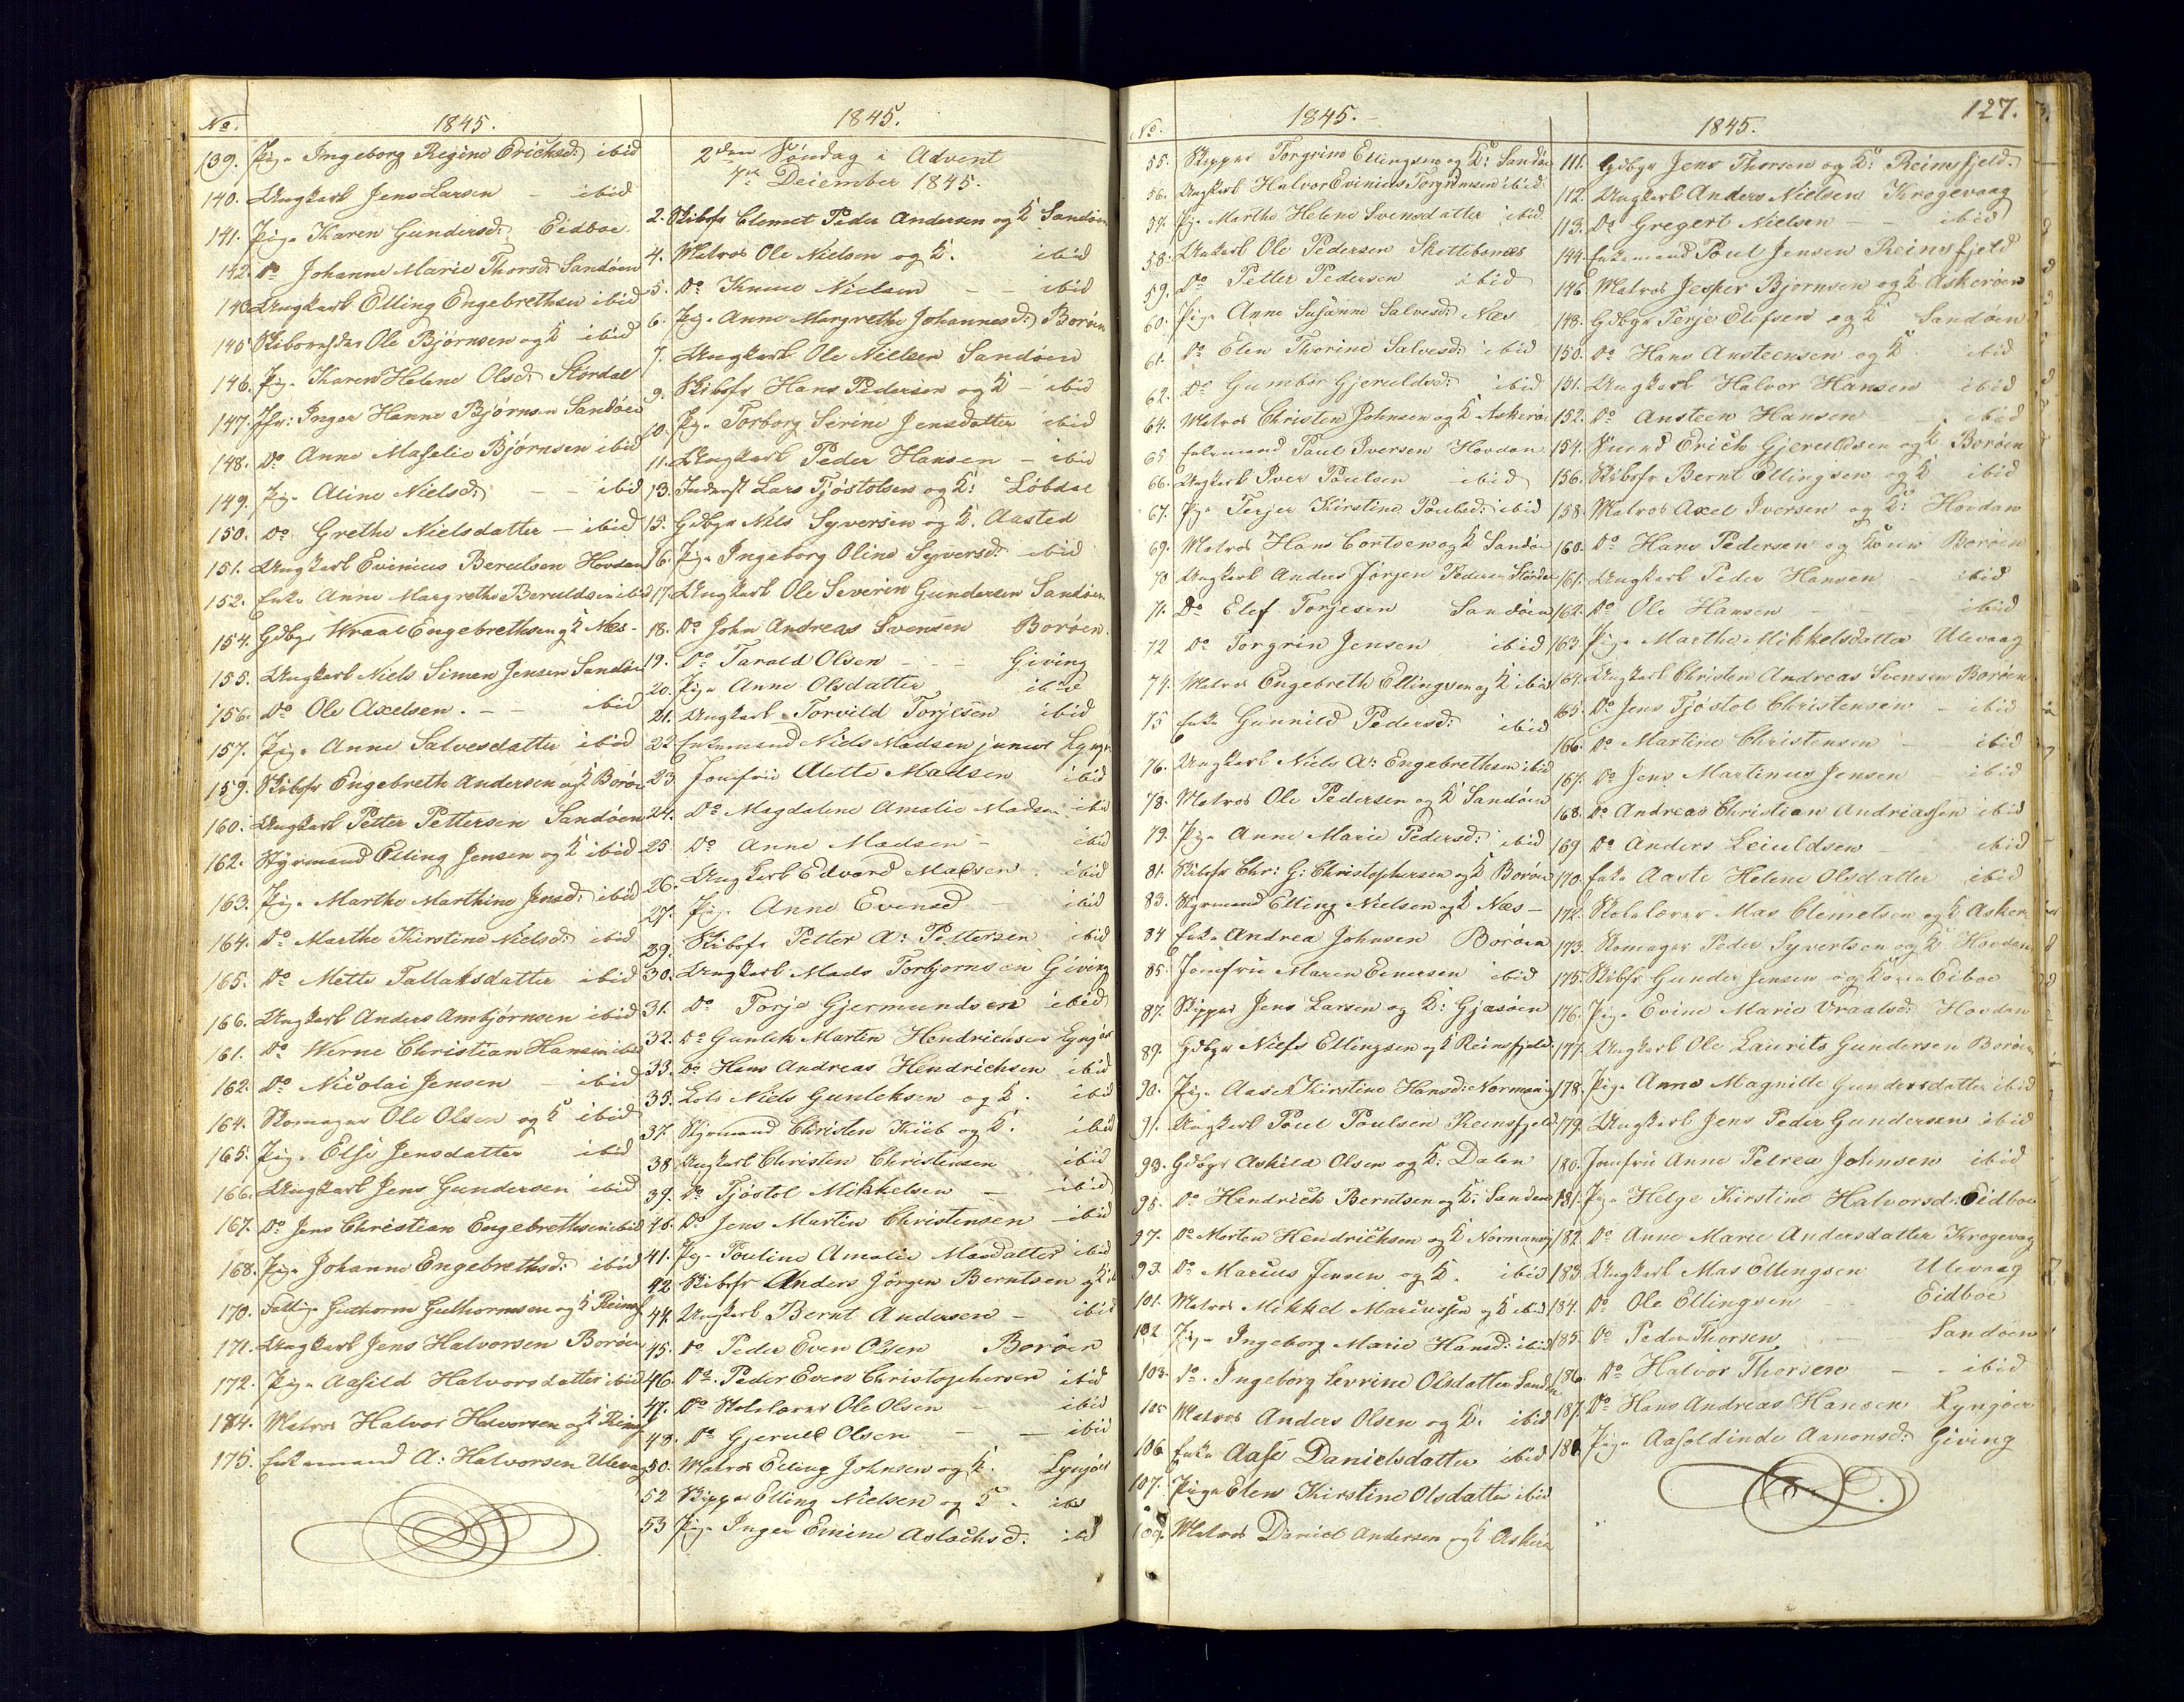 No.
1845.
139. Pige Ingeborg Regine Ericksd: ibid
140. Ungkarl Jens Larsen – ibid
141. Pige Karen Gundersd: Eidboe
142. Do Johanne Marie Thorsd: Sandöen
143. Ungkarl Elling Engebrethsen ibid
145. Ole Björnsen og K ibid
146. Pige Karen Helene Olsd: Stordal
147. Jfr: Inger Hanne Björnsen Sandöen
148. Do Anne Maselie Björnsen ibid
149. Pige Aline Nielsd: – – ibid
150. Do Grethe Nielsdatter – ibid
151. Ungkarl Evinius Beruldsen Hovdan
152. Enke Anne Margrethe Beruldsen ibid
154. Gdbgr Wraal Engebrethsen og K Næs –
155. Ungkarl Niels Simen Jensen Sandöen
156. Do Ole Axelsen. – – ibid
157. Pige Anne Salvesdatter ibid
159. Skibsfr Engebreth Andersen og K Boröen
160. Ungkarl Petter Pettersen Sandöen
162. Styrmand Elling Jensen og K ibid
163. Pige Marthe Marthine Jensd: ibid
164. Do Marthe Kirstine Nielsd: ibid
165. Do Mette Tallaksdatter ibid
166. Ungkarl Anders Ambjörnsen ibid
161. Do Werne Christian Hansen ibid
162. Do Nicolai Jensen – ibid
164. Skomager Ole Olsen og K ibid
165. Pige Else Jensdatter ibid
166. Ungkarl Jens Gundersen ibid
167. Do Jens Christian Engebrethsen ibid
168. Pige Johanne Engebrethsd: ibid
170. Guthorm Guthormsen og K Reinsf
171. Ungkarl Jens Halvorsen Boröen
172. Pige Aasild Halvorsdatter ibid
174. Matros Halvor Halvorsen og K Reinsf
175. Enkemand A: Halvorsen Ulevaag
1845.
2den Söndag i Advent
7de December 1845.
2. Skibsfr Clemet Peder Andersen og K Sandöen
4. Matros Ole Nielsen og K. ibid
5. Do Knud Nielsen – – ibid
6. Pige Anne Margrethe Johannesd: Boröen
7. Ungkarl Ole Nielsen Sandöen
9. Skibsfr Hans Pedersen og K – ibid
10. Pige Torborg Serine Jensdatter ibid
11. Ungkarl Peder Hansen – ibid
13. Inderst Lars Tjöstolsen og K: Löbdal
15. Gdbgr Nils Syversen og K. Aasted
16. Pige Ingeborg Oline Syversd: ibid
17. Ungkarl Ole Severin Gundersen Sandöen
18. Do John Andreas Svensen Boröen.
19. Do Tarald Olsen – – – Giving
20. Pige Anne Olsdatter ibid
21. Ungkarl Torvild Torjesen ibid
22. Enkemand Niels Madsen junior Lyngör
23 Jomfrü Alette Madsen ibid
24. Do Magdalene Amalie Madsen ibid
25 Do Anne Madsen – ibid
26. Ungkarl Edvard Madsen. ibid
27. Pige Anne Evensd – ibid
29. Skibsfr Petter A: Pettersen ibid
30. Ungkarl Mads Torbjornsen Giving
31. Do Torje Gjermundsen ibid
32. Do Gunlek Martin Hendricksen Lyngör
33. Do Hans Andreas Hendrichsen ibid
35. Lods Niels Gunleksen og K. ibid
37. Styrmand Christen Kiib og K. ibid
38 Ungkarl Christen Christensen ibid
39. Do Tjöstol Mikkelsen – ibid
40. Do Jens Martin Christensen – ibid
41. Pige Pouline Amalie Masdatter ibid
42 Skibsfr Anders Jörgen Berntsen og K
44. Ungkarl Bernt Andersen – ibid
45. Do Peder Even Olsen Boröen
46. Do Peder Even Christophersen ibid
47. Do Skolelærer Ole Olsen – ibid
48. Do Gjeruld Olsen – – ibid
50. Matros Elling Johnsen og K. Lyngör
52 Skipper Elling Nielsen og K. ibid
53 Pige Inger Emine Aslachsd: ibid
127.
No.
1845. –
55. Skipper Torgrim Ellingsen og K: Sandöe
56. Ungkarl Halvor Evinius Torgrimsen ibid
57. Pige Marthe Helene Svensdatter ibid.
58. Ungkarl Ole Pedersen Skottebsnæs
59. Do Petter Pedersen ibid
60. Pige Anne Susanne Salvesd: Næs
61. Do Elen Thorine Salvesd: ibid
62. Do Gumbör Gjeruldsd: ibid
64. Matros Christen Johnsen og K Askeröe
65 Enkemand Paul Iversen Hovdan
66. Ungkarl Iver Poulsen ibid
67. Pige Terjer Kirstine Poulsd: ibid
69. Matros Hans Cortsen og K Sandöe
70 Ungkarl Anders Jörgen Pedersen Stordal
71. Do Elef Torjesen Sandöen
72 Do Torgrim Jensen ibid
74. Matros Engebreth Ellingsen og K ibid
75 Enke Gunnild Pedersd: ibid
76. Ungkarl Niels A: Engebrethsen ibid
78. Matros Ole Pedersen og K Sandöen
79. Pige Anne Marie Pedersd: ibid
81. Skibsfr Chr: G: Christophersen og K Boröen
83. Styrmand Elling Nielsen og K Næs –
84 Enke Andrea Johnsen Boröen
85. Jomfrü Maren Evensen ibid
87. Skipper Jens Larsen og K: Gjæsöen
89. Gdbgr Niels Ellingsen og K Reinsfjeld.
90. Pige Aaset Kirstine Hansd: Normanvig
91. Ungkarl Poul Poulsen Reinsfjeld
93. Gdbgr Askild Olsen og K: Dalen
95. Do Hendrich Berntsen og K: Sanden
97. Do Morten Hendrichsen og K Normanvig
99. Do Marcus Jensen og K. ibid
101. Matros Mikkel Marcussen og K ibid
102 Pige Ingeborg Marie Hansd: ibid
103. Do. Ingeborg Sevrine Olsdatter Sanden
105 Matros Anders Olsen og K. ibid
106 Enke Aase Danielsdatter ibid
107. Pige Elen Kirstine Olsdatter ibid
109. Matros Daniel Andersen og K Askerö
1845.
111. Gdbgr Jens Thorsen og K: Reinsfjeld.
112. Ungkarl Anders Nielsen Krogevaag
113. Do Gregert Nielsen – ibid
144. Enkemand Poul Jensen Reinsfjeld
146 Matros Jesper Bjornsen og K Askeröen
148. Gdbgr Terje Elefsen og K Sandöen
150. Do Hans Ansteensen og K. ibid
151. Ungkarl Halvor Hansen ibid
152. Do Ansteen Hansen – ibid
154. Erich Gjeruldsen og K Boröen
156. Skibsfr Bernt Ellingsen og K ibid
158. Matros Axel Iversen og K: Hovdan
160. Do Hans Pedersen og Kone Boröen
161. Ungkarl Peder Hansen – ibid
162. Do Ole Hansen – – ibid
163. Pige Marthe Mikkelsdatter Ulevaag
164. Ungkarl Christen Andreas Svensen Boröen.
165. Do Jens Tjöstol Christensen – ibid
166. Do Martine Christensen – ibid
167. Do Jens Martinus Jensen – ibid
168. Do Andreas Christian Andreassen ibid
169 Do Anders Leiuldsen – ibid
170. Enke Aaste Helene Olsdatter ibid
172. Skolelærer Mas Clemetsen og K Asker
173. Skomager Peder Syvertsen og K Hovdan
175. Skibsfr Gunder Jensen og Kone Eiboe
176. Pige Evine Marie Vraalsd: Hovdan
177. Ungkarl Ole Laurits Gundersen Boröen
178. Pige Anne Magnille Gundersdatter ibid
179. Ungkarl Jens Peder Gundersen ibid
180. Jomfrü Anne Petrea Johnsen ibid
181. Pige Helge Kirstine Halvorsd: Eidboe
182. Do Anne Marie Andersdatter Krogevaag
183. Ungkarl Mas Ellingsen Ulevaag
184. Do Ole Ellingsen – Eidboe
185. Do Peder Thorsen – Sandöen
186. Do Halvor Thorsen – ibid
187. Do Hans Andreas Hansen Lyngöer
188. Pige Aasoldinde Aanonsd: Giving